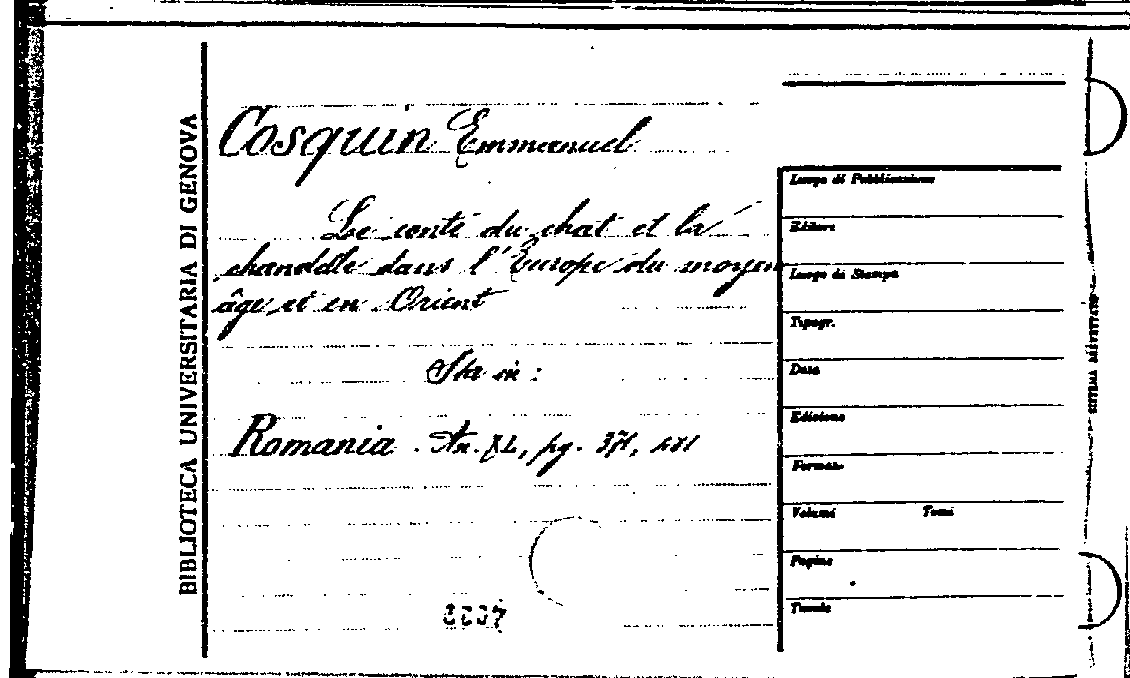 BIBLIOTECA UNIVERSITARIA DI GENOVA
Cosquin Emmanuel
Le conte du chat et la
chandelle dans l'Europe du moyen
âge et en Orient
Sta in:
Romania. An. XL, pg. 371, 481
Luogo di Pubblicazione
Editore
Luogo di Stampa
Tipogr.
Data
Edizione
Formato
Volumi Tomi
Pagine
Tavole